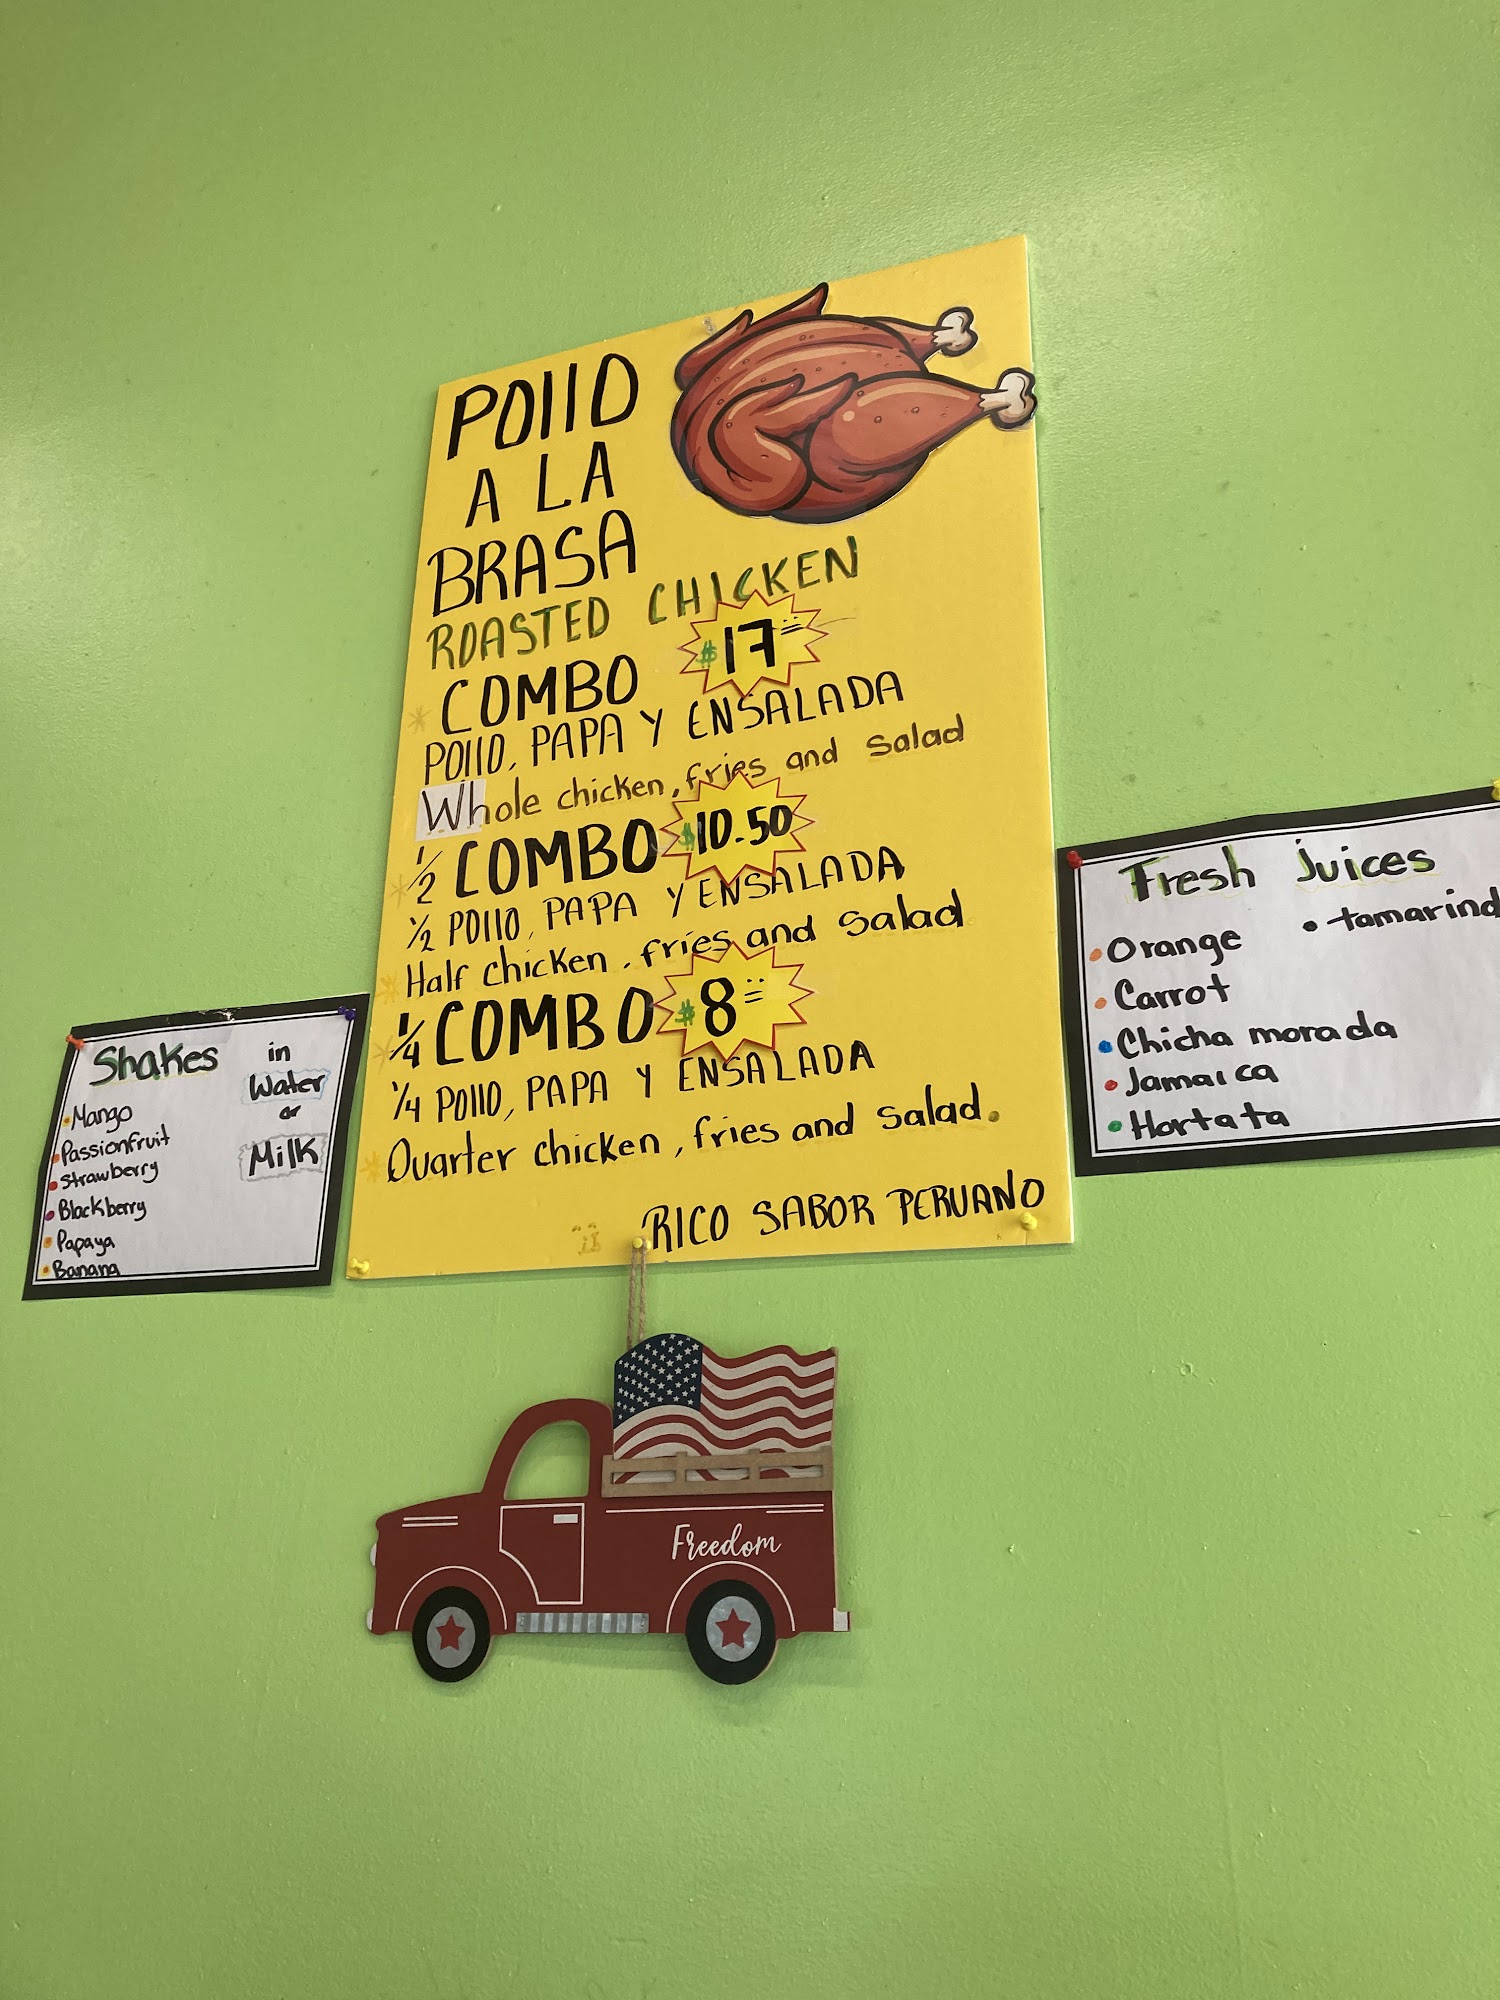 POllO
A LA
BRASA
ROASTED CHICKEN
* COMBO $17=
POllO, PAPA Y ENSALADA
Whole chicken, fries and salad
* 1/2 COMBO $10.50
1/2 POllO, PAPA Y ENSALADA
* Half chicken, fries and salad
* 1/4 COMBO $8=
1/4 POllO, PAPA Y ENSALADA
* Quarter chicken, fries and salad.
RICO SABOR PERUANO
Shakes in
Water
or
Milk
• Mango
• Passionfruit
• Strawberry
• Blackberry
• Papaya
• Banana
Fresh juices
• Orange
• tamarind
• Carrot
• Chicha morada
• Jamaica
• Hortata
Freedom